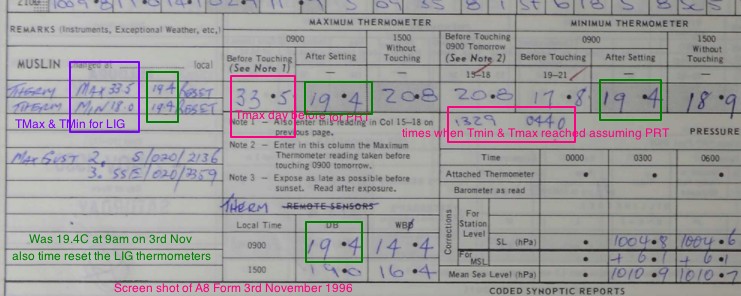 MAXIMUM THERMOMETER
MINIMUM THERMOMETER
REMARKS (Instruments, Exceptional Weather, etc.)
0900
1500
0900
1500
Before Touching
(See Note 1)
After Setting
Without
Touching
Before Touching
0900 Tomorrow
(See Note 2)
Before Touching
After Setting
Without
Touching
MUSLIN changed at local
15-18
19-21
THERM MAX 33.5 19.4 RESET
THERM MIN 18.0 19.4 RESET
33.5
19.4
20.8
20.8
17.8
19.4
18.9
TMax & TMin for LIG
Tmax day before for PRT
Note 1 — Also enter this reading in Col 15—18 on previous page.
1329 0440
times when Tmin & Tmax reached assuming PRT
PRESSURE
Note 2 — Enter in this column the Maximum Thermometer reading taken before touching 0900 tomorrow.
Note 3 — Expose as late as possible before sunset. Read after exposure.
Max Gust 2. S/020/2136
3. SSE/020/2359
Time 0000 0300 0600
Attached Thermometer
Barometer as read
THERM REMOTE SENSORS
Local Time DB WB
0900 19.4 14.4
1500 16.4
Corrections
For
Station
Level
SL (hPa) 1004.8 1004.6
For
MSL + 6.1 + 6.1
Mean Sea Level (hPa) 1010.9 1010.7
Was 19.4C at 9am on 3rd Nov
also time reset the LIG thermometers
Screen shot of A8 Form 3rd November 1996
CODED SYNOPTIC REPORTS